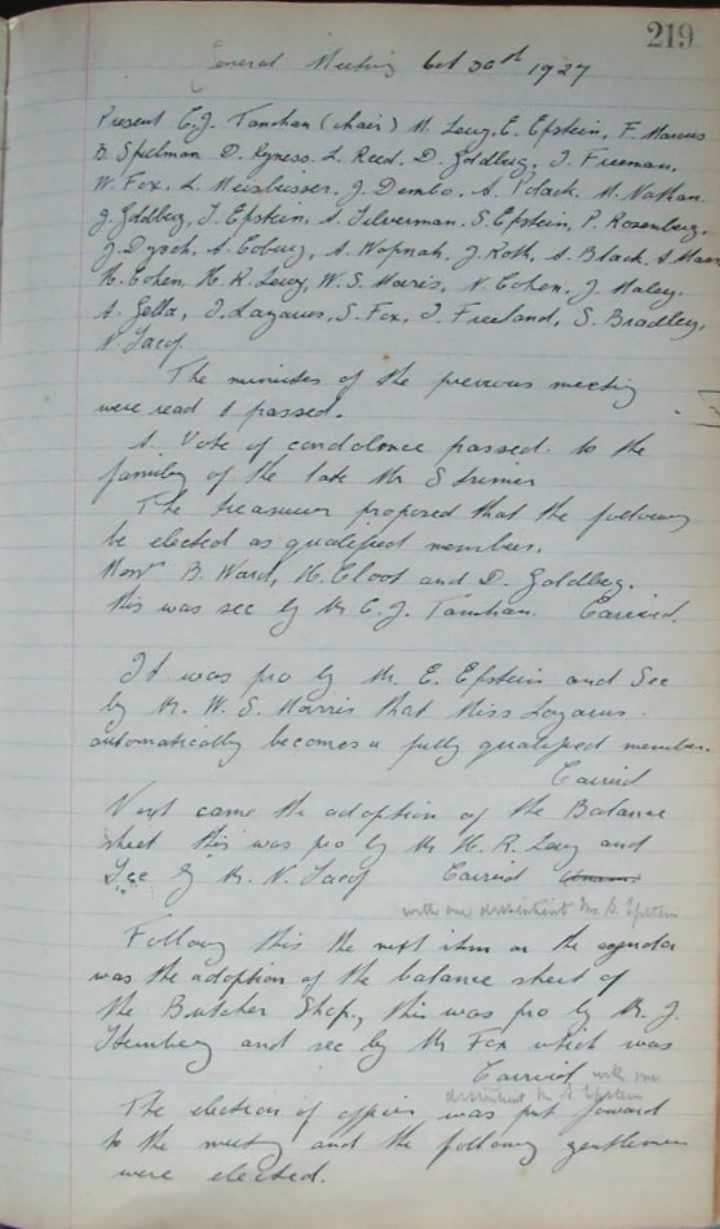 219
General Meeting Oct 30th 1927
Present C.J. Tanchan (chair) M. Levy, E. Epstein, F. Marcus
B. Spielman D. Ryness. L. Reed. D. Goldberg, J. Freeman.
W. Fox. L. J. Dembo. A. Polack. M. Nathan.
J. Goldberg, J. Epstein, A. Silverman. S. Epstein, P. Rosenberg,
J. A. Coburg, A. Wopnah. J. Roth, A. Black. A
H. Cohen, H. R. Levy, W. S. Morris, N. Cohen. J. Haley.
A. Gella, J. Lazarus, S. Fox, J. Freeland, S. Bradley,
N. Jacof.
The minutes of the previous meeting
were read & passed.
A. Vote of condolence passed. to the
family of the late Mr S
The treasurer proposed that the following
be elected as qualified members.
B. Ward, H. Cloot and D. Goldberg.
this was sec by Mr C. J. Tanchan. Carried.
It was pro by Mr. E. Epstein and Sec
by Mr. W. S. Morris that Miss Lazarus
automatically becomes a fully qualified member.
Carried
Next came the adoption of the Balance
sheet this was pro by Mr H. R. Levy and
Sec by Mr. N. Jacof Carried Unam.
with one dissentient Mr. S. Epstein
Following this the next item on the agenda
was the adoption of the balance sheet of
the Butcher Shop, this was pro by Mr. J.
and sec by Mr Fox which was
Carried with one
dissentient Mr S. Epstein
The election of officers was put forward
to the meeting and the following gentlemen
were elected.